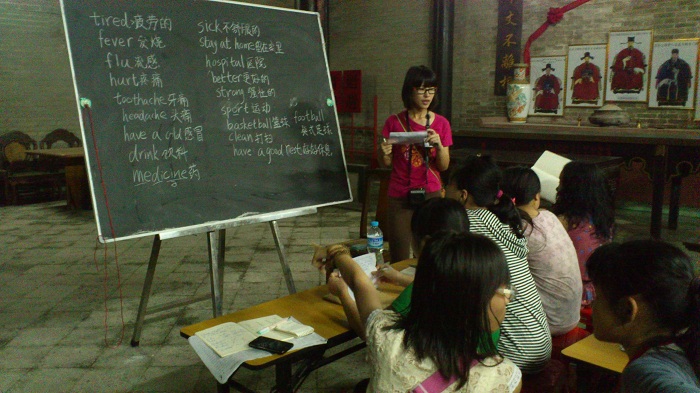 tired 疲劳的
fever 发烧
flu 流感
hurt 疼痛
toothache 牙痛
headache 头痛
have a cold 感冒
drink 饮料
medicine 药
sick 不舒服的
stay at home 呆在家里
hospital 医院
better 更好的
strong 强壮的
sport 运动
basketball 篮球 football
美式足球
clean 打扫
have a good rest 好好休息